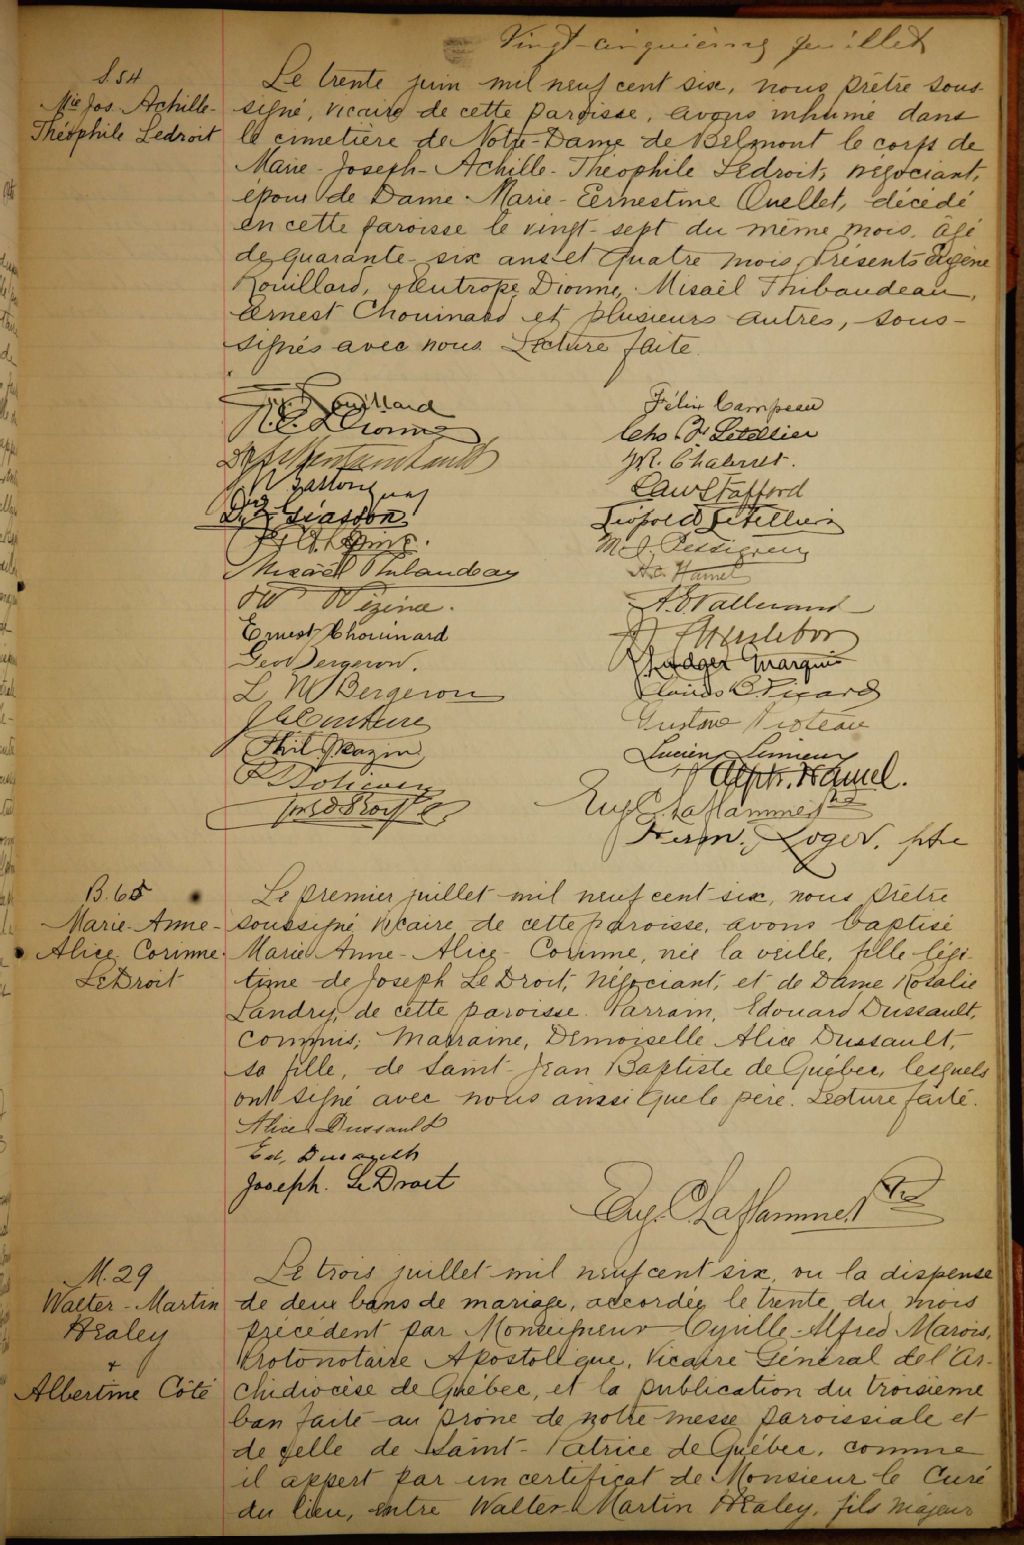 Vingt-cinquième feuillet
S. 54
Mie Jos. Achille-
Théophile Ledroit
Le trente juin mil neuf cent six, nous prêtre sous-
signé, vicaire de cette paroisse, avons inhumé dans
le cimetière de Notre-Dame de Belmont le corps de
Marie-Joseph-Achille-Théophile Ledroit, négociant,
époux de Dame Marie-Ernestine Ouellet, décédé
en cette paroisse le vingt-sept du même mois, âgé
de quarante-six ans et quatre mois. Présents
Rouillard, Eutrope Dionne, Misaël Thibaudeau,
Ernest Chouinard et plusieurs autres, sous-
signés avec nous. Lecture faite.
Rouillard
N. E. Dionne
Giasson
Misael Thibaudeau
Vézina.
Ernest Chouinard
Geo Bergeron.
L N Bergeron
J Couture
Phil. Bazin
Félix Campeau
Chs Letellier
Stafford
Léopold Letellier
Hamel
Ludger Marquis
Picard
Gustave
Lucien Lemieux
Alph. Hamel.
Eug. C. Laflamme, Ptre
Roger, ptre
B. 65
Marie-Anne-
Alice Corinne
LeDroit
Le premier juillet mil neuf cent six, nous prêtre
soussigné, vicaire de cette paroisse, avons baptisé
Marie Anne-Alice-Corinne, née la veille, fille légi-
time de Joseph LeDroit, négociant, et de Dame Rosalie
Landry, de cette paroisse. Parrain, Edouard Dussault,
commis; Marraine, Demoiselle Alice Dussault,
sa fille, de Saint-Jean Baptiste de Québec, lesquels
ont signé avec nous ainsi que le père. Lecture faite.
Alice Dussault
Ed. Dussault
Joseph. LeDroit
Eug. C. Laflamme, Ptre
M. 29
Walter-Martin
Healey
+
Albertine Côté
Le trois juillet mil neuf cent six, vu la dispense
de deux bans de mariage, accordée le trente du mois
précédent par Monseigneur Cyrille-Alfred Marois,
Protonotaire Apostolique, Vicaire Général de l'Ar-
chidiocèse de Québec, et la publication du troisième
ban faite au prône de notre messe paroissiale et
de celle de Saint-Patrice de Québec, comme
il appert par un certificat de Monsieur le Curé
du lieu, entre Walter-Martin Healey, fils majeur